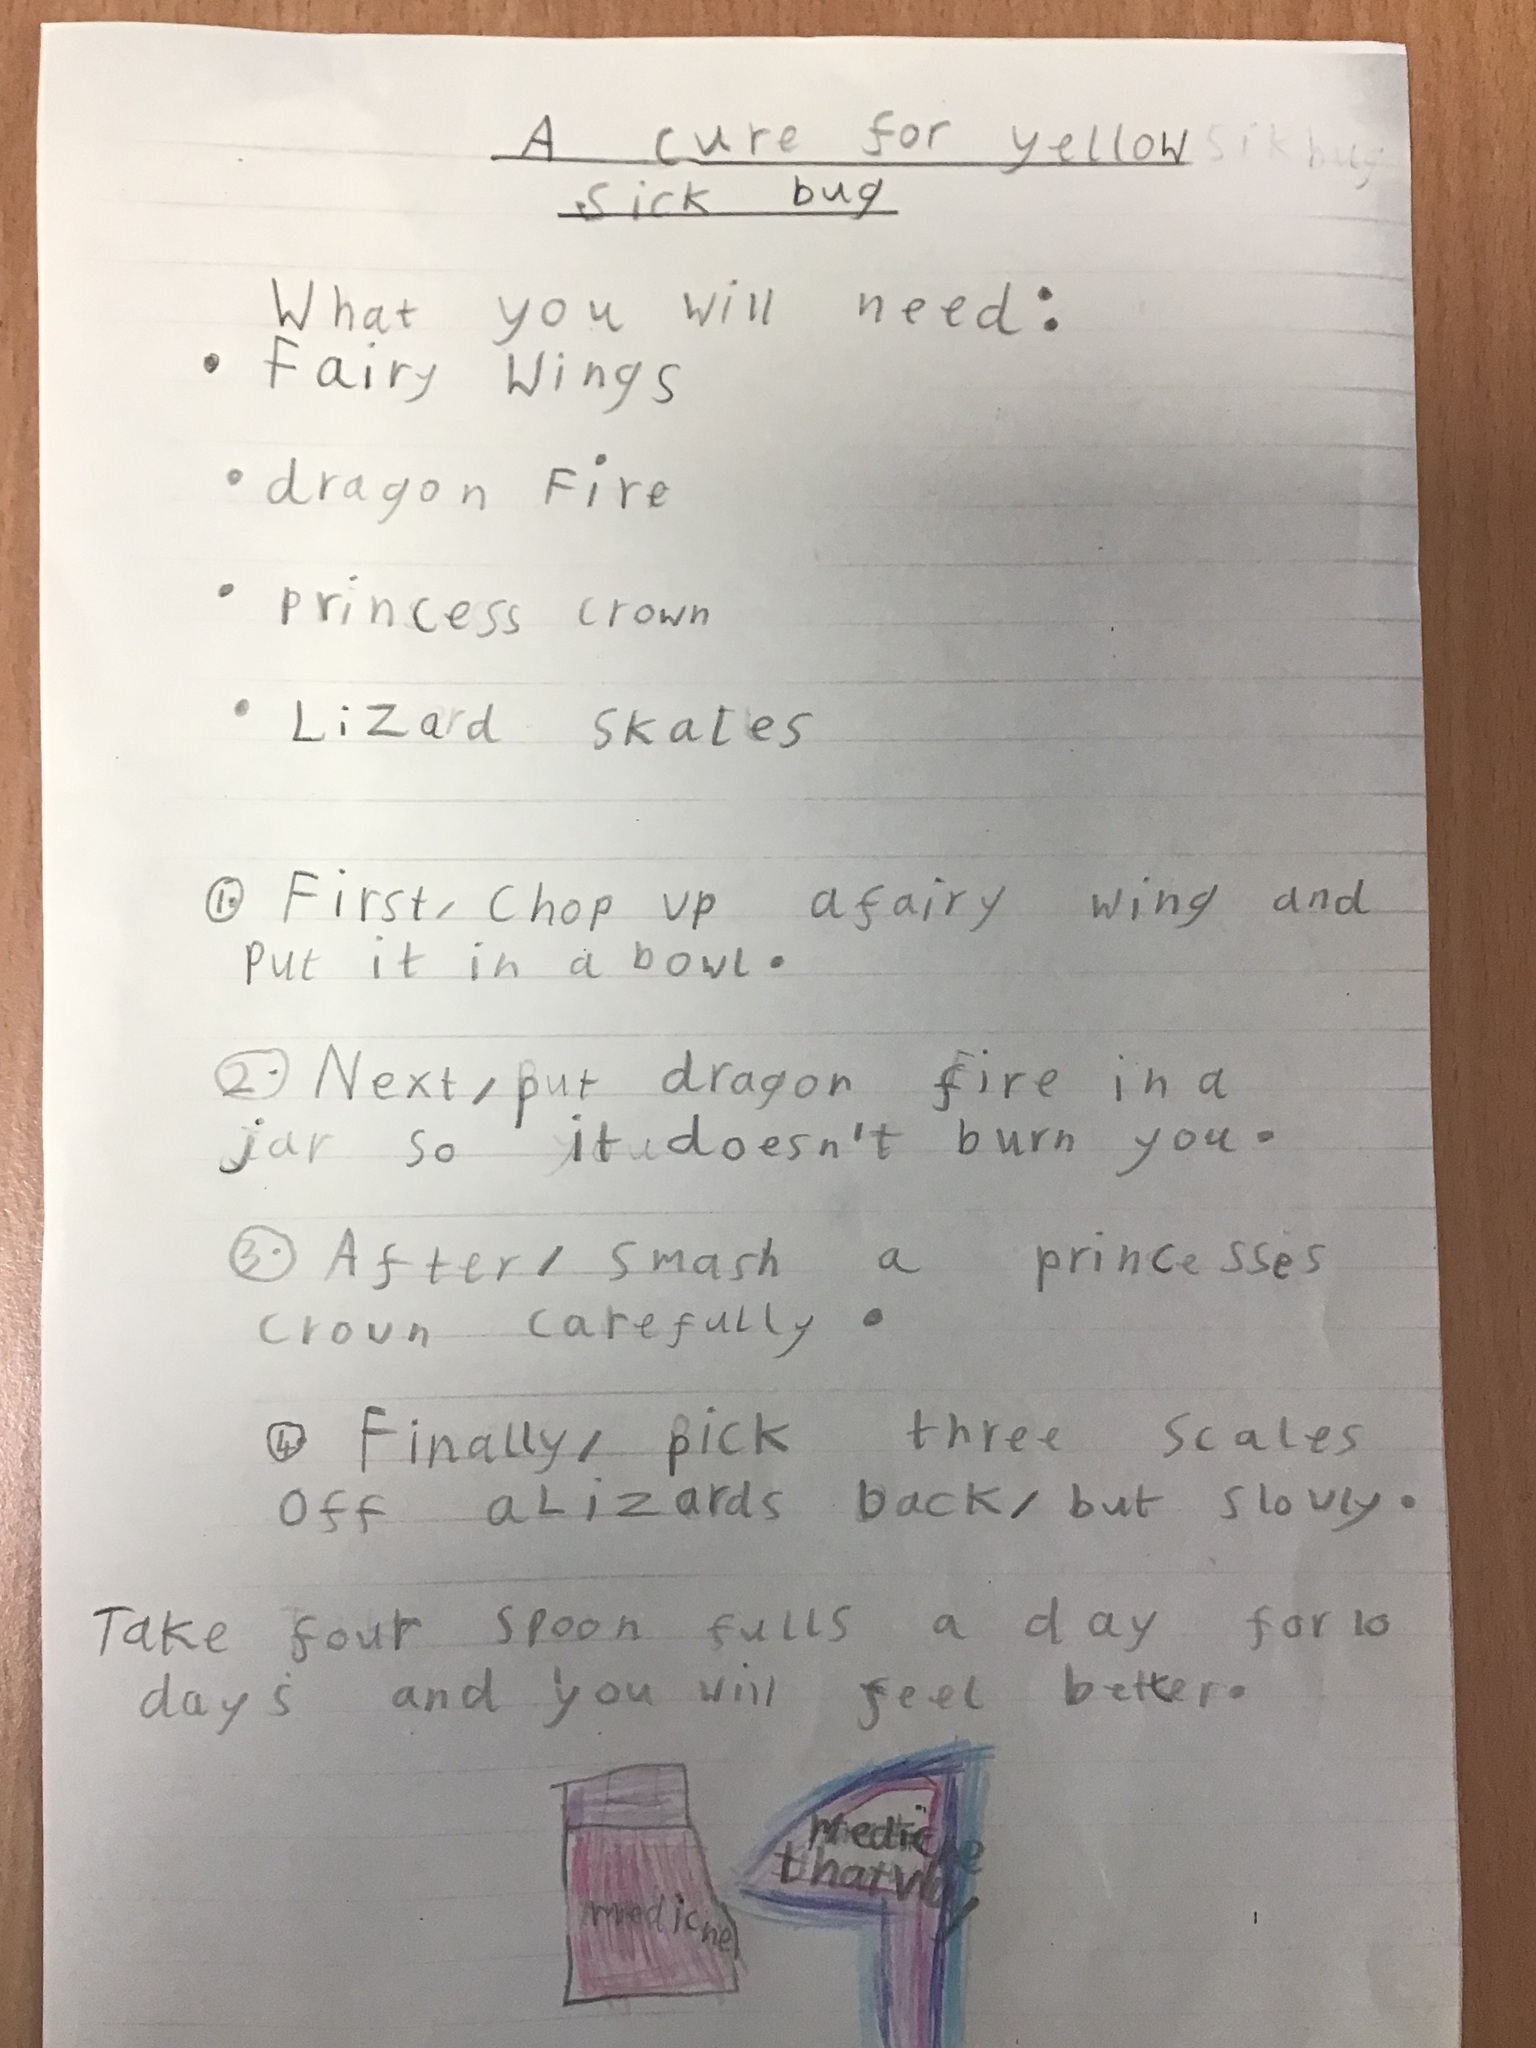 A cure for yellow
sick bug
What you will need:
• Fairy Wings
• dragon Fire
• princess crown
• Lizard skales
1. First, Chop up a fairy wing and
put it in a bowl.
2. Next, put dragon fire in a
jar so it doesn't burn you.
3. After, smash a princesses
croun carefully.
4. Finally, pick three scales
off a Lizards back, but slouly.
Take four spoon fulls a day for 10
days and you will feel better.
medicine
medicine
that way